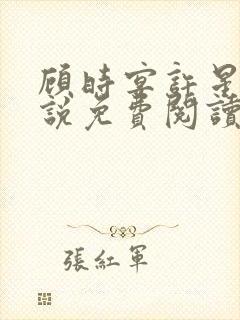 顾時宴許星
說免費閱讀
張紅軍